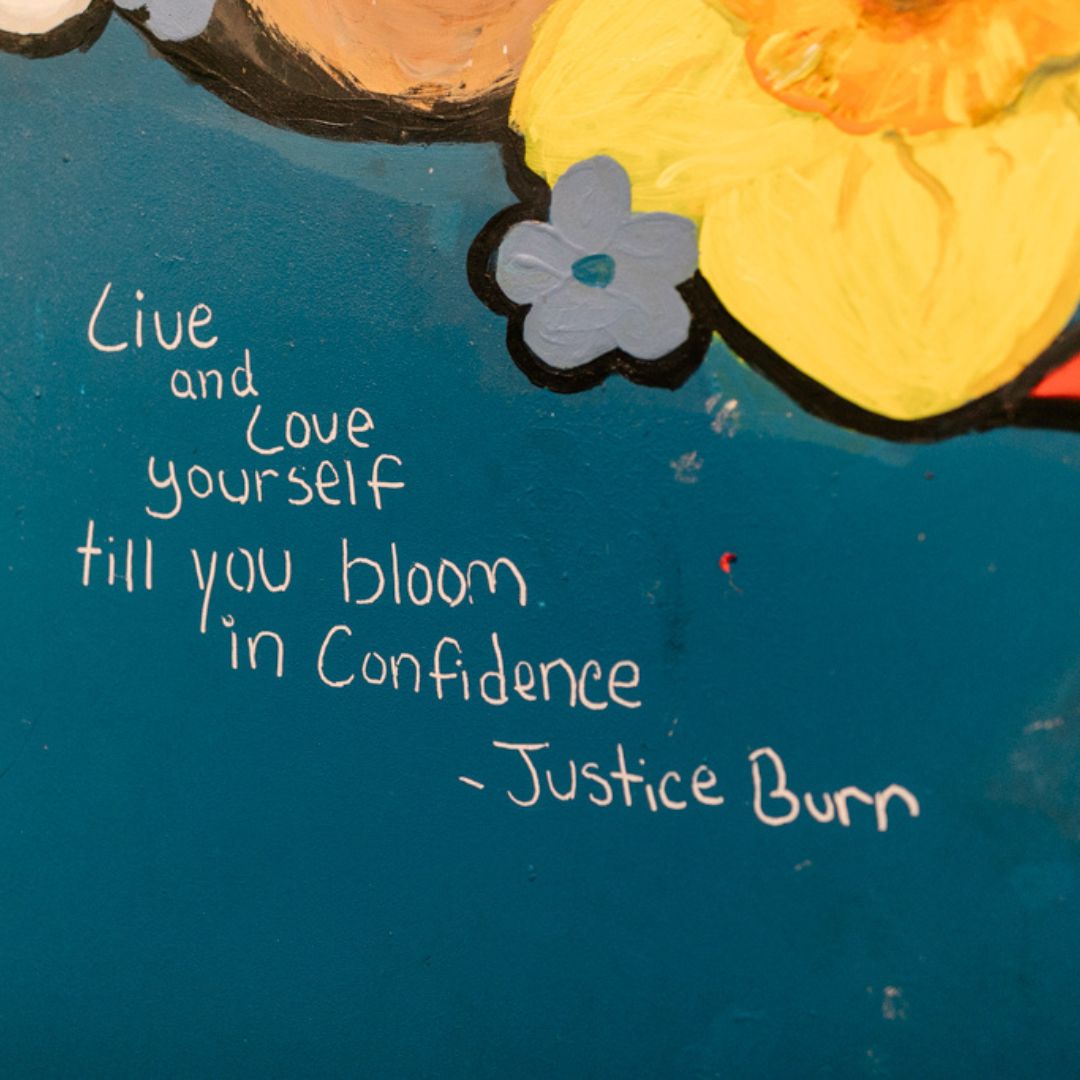 Live
and
Love
yourself
till you bloom
in Confidence
- Justice Burn